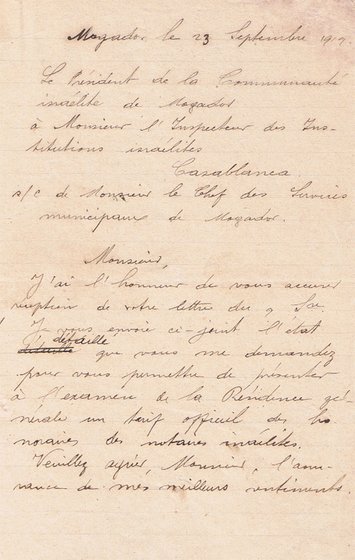 Mogador le 23 Septembre 19
Le Président de la Communauté
israélite de Mogador
à Monsieur l'Inspecteur des Ins-
titutions israélites
Casablanca
s/c de Monsieur le Chef des Services
municipaux de Mogador.
Monsieur,
J'ai l'honneur de vous accuser
réception de votre lettre du 9 
Je vous envoie ci-joint l'état
détaillé
que vous me demandez
pour vous permettre de présenter
à l'examen de la Résidence gé-
nérale un tarif officiel des ho
noraires des notaires israélites.
Veuillez agréer, Monsieur, l'assu-
rance de mes meilleurs sentiments.